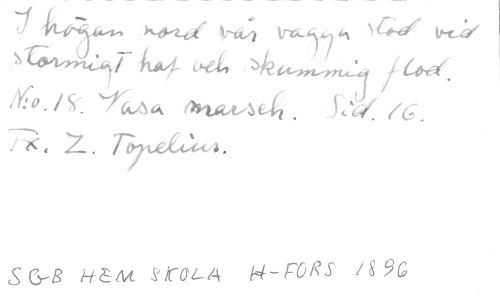 I högan nord vår vagga stod vid
stormigt haf och skummig flod.
N:o. 18. Vasa marsch. Sid. 16.
Tx. Z. Topelius.
SGB HEM SKOLA H-FORS 1896